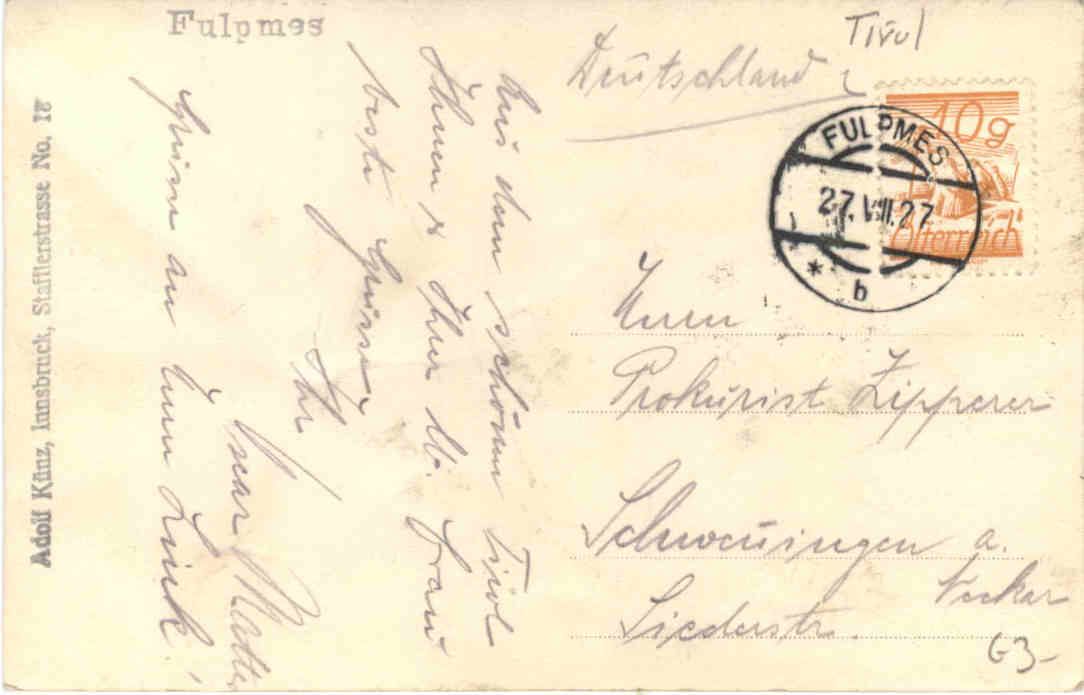 Fulpmes
Tirol
Deutschland
10g
Österreich
FULPMES
27.VIII.27
* b
Aus dem schönen Tirol
Ihnen & Ihrer lb. Frau
beste Grüsse
Ihr
Oscar
Grüsse an Herrn Link!
Herrn
Prokurist Zipperer
Schwenningen a.
Neckar
Liederstr.
G3-
Adolf Künz, Innsbruck, Stafflerstrasse No. 18